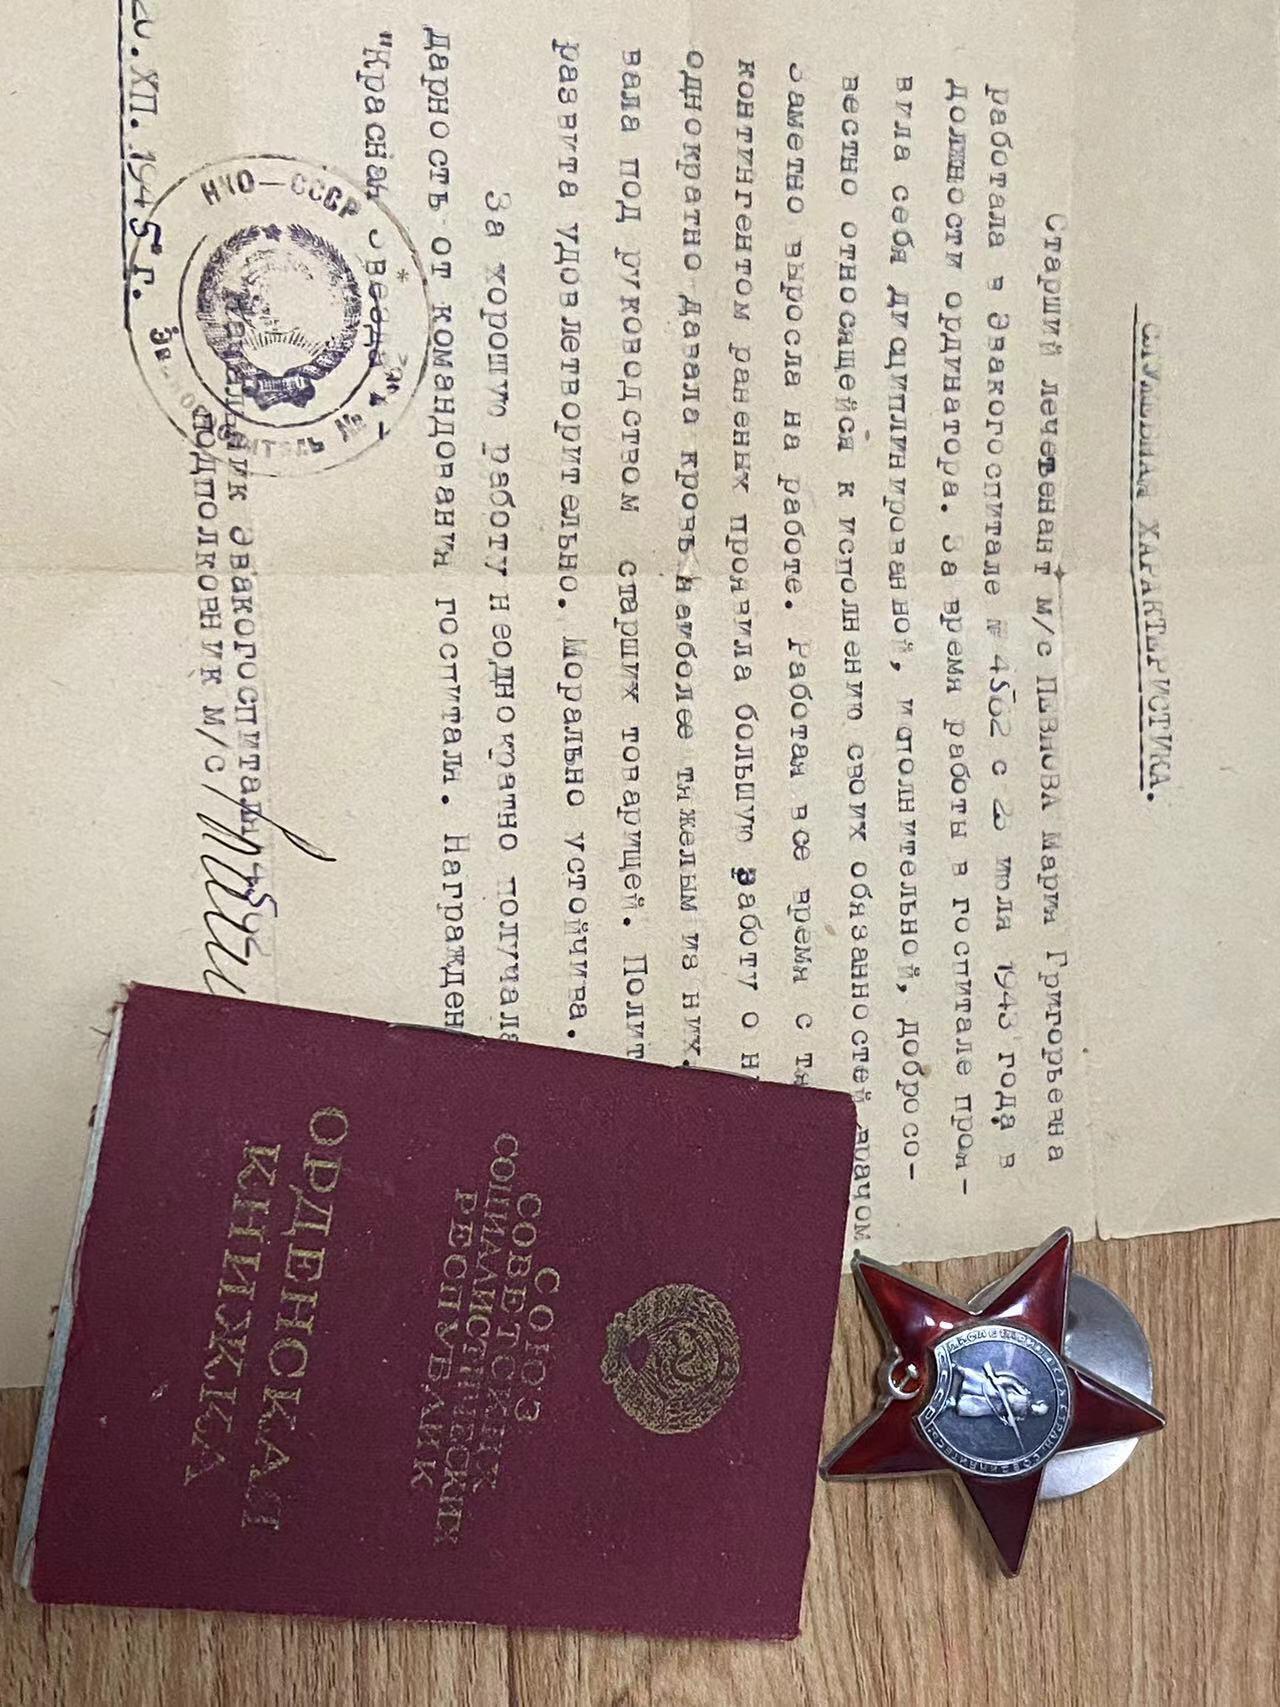 СЛУЖЕБНАЯ ХАРАКТЕРИСТИКА.
Старший лечетенант м/с ПЕВНОВА Мария Григорьевна
работала в Эвакогоспитале № 4502 с 20 июля 1943 года в
должности ординатора. За время работы в госпитале проя-
вила себя дисциплинированной, исполнительной, добросо-
вестно относящейся к исполнению своих обязанностей врачом.
Заметно выросла на работе. Работая все время с тя
контингентом раненых проявила большую работу о н
однократно давала кровь наиболее тяжелым из них.
вала под руководством старших товарищей. Полит
развита удовлетворительно. Морально устойчива.
За хорошую работу неоднократно получала
дарность от командования госпиталя. Награжден
"Красная Звезда"-
НКО-СССР
Начальник эвакогоспиталя 4502
подполковник м/с
20.ХП.1945 г.
СОЮЗ
СОВЕТСКИХ
СОЦИАЛИСТИЧЕСКИХ
РЕСПУБЛИК
ОРДЕНСКАЯ
КНИЖКА
ПРОЛЕТАРИИ ВСЕХ СТРАН, СОЕДИНЯЙТЕСЬ!
СССР